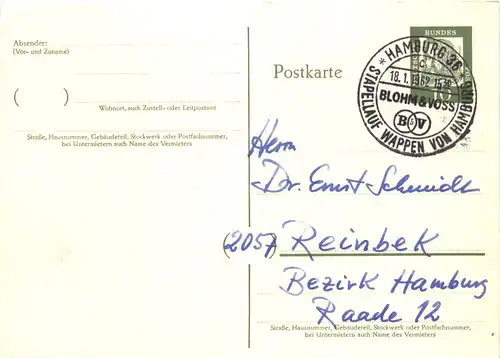 Absender:
(Vor- und Zuname)
( )
Wohnort, auch Zustell- oder Leitpostamt
Straße, Hausnummer, Gebäudeteil, Stockwerk oder Postfachnummer,
bei Untermietern auch Name des Vermieters
Postkarte
BUNDES
* HAMBURG 36
18.1.1962
BLOHM & VOSS
B&V
STAPELLAUF WAPPEN VON HAMBURG
Herrn
Dr. Ernst Schmidt
(2057) Reinbek
Bezirk Hamburg
Raade 12
Straße, Hausnummer, Gebäudeteil, Stockwerk oder Postfachnummer,
bei Untermietern auch Name des Vermieters